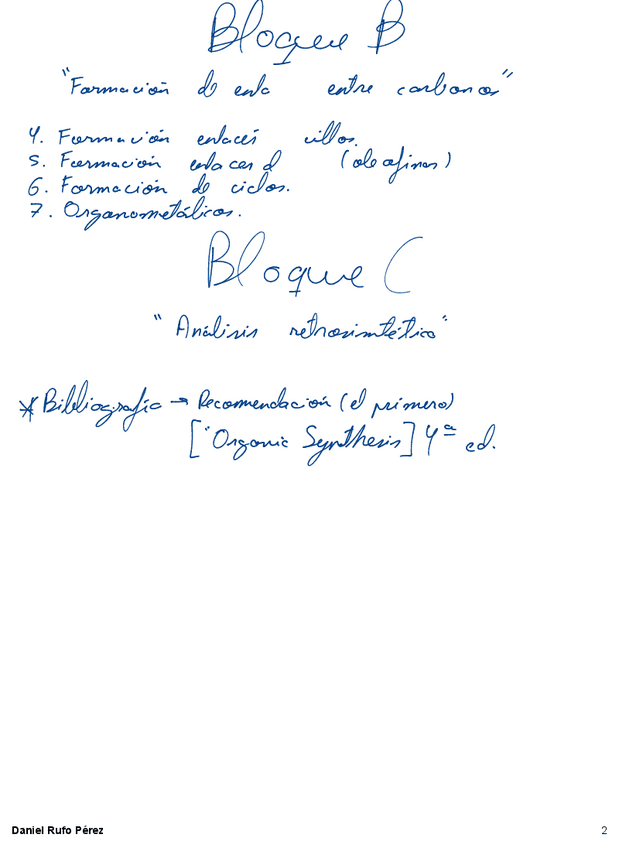 Bloque B
"Formación de enla entre carbonos"
4. Formación enlaces cillos.
5. Formación enlaces d (oleofinas)
6. Formación de ciclos.
7. Organometálicos.
Bloque C
"Análisis retrosintético"
* Bibliografía → Recomendación (el primero)
["Organic Synthesis] 4ª ed.
Daniel Rufo Pérez
2